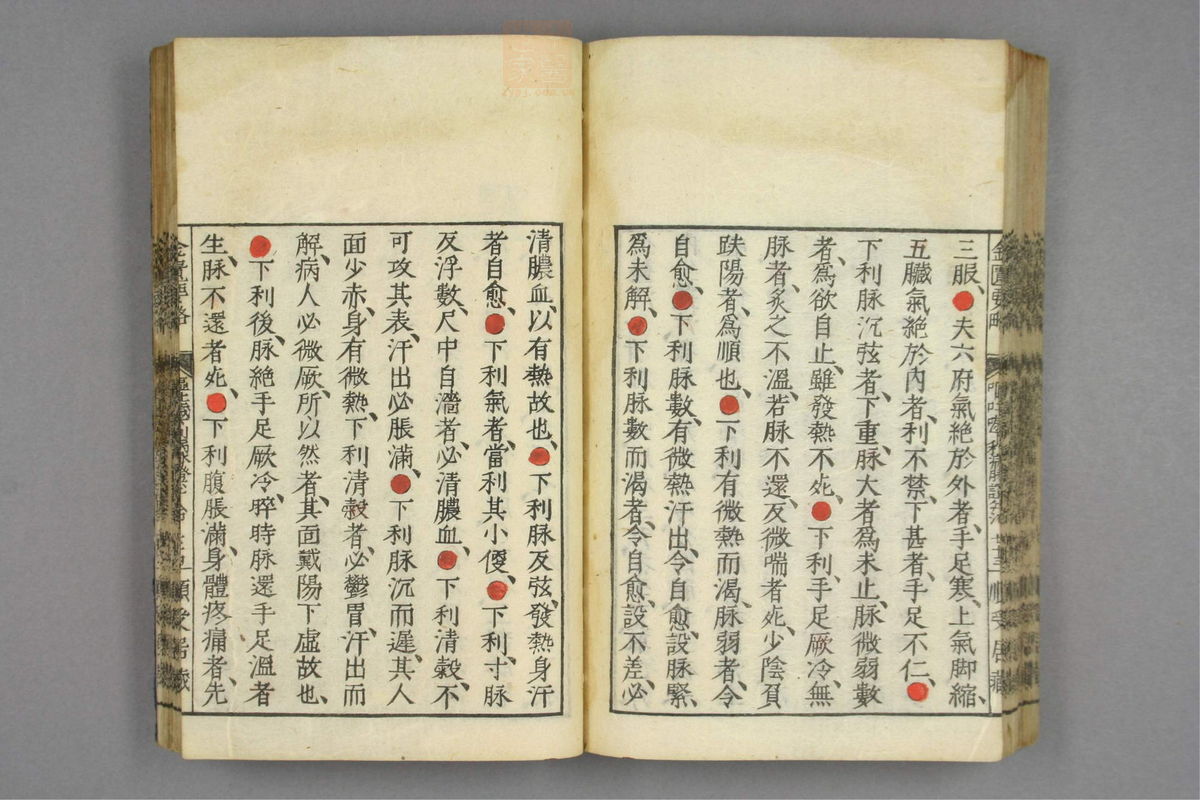 三服、夫六府氣絶於外者、手足寒、上氣脚縮、
五臟氣絶於内者、利不禁、下甚者、手足不仁、
下利脉沉弦者、下重、脉大者爲未止、脉微弱數
者、爲欲自止、雖發熱不死、下利、手足厥冷、無
脉者、灸之不溫、若脉不還、反微喘者死、少陰負
趺陽者、爲順也、下利有微熱而渴、脉弱者、令
自愈、下利脉數、有微熱汗出、令自愈、設脉緊、
爲未解、下利脉數而渴者、令自愈、設不差、必
清膿血、以有熱故也、下利脉反弦、發熱身汗
者自愈、下利氣者、當利其小便、下利、寸脉
反浮數、尺中自濇者、必清膿血、下利清穀、不
可攻其表、汗出必脹滿、下利脉沉而遲、其人
面少赤、身有微熱、下利清穀者、必鬱冒、汗出而
解、病人必微厥、所以然者、其面戴陽下虛故也、
下利後、脉絶手足厥冷、晬時脉還手足溫者
生、脉不還者死、下利腹脹滿、身體疼痛者、先